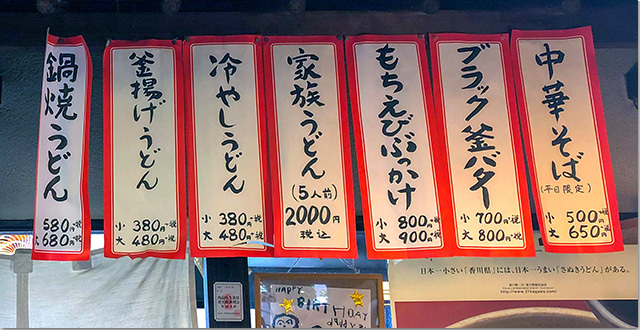 鍋焼うどん
580円・税
大680円・税
釜揚げうどん
小 380円・税
大 480円・税
冷やしうどん
小 380円・税
大 480円・税
家族うどん
(5人前)
2000円
税込
もちえびぶっかけ
小 800円・税
大 900円・税
ブラック釜バター
小 700円・税
大 800円・税
中華そば
(平日限定)
小 500円
大 650円
日本一小さい「香川県」には、日本一うまい「さぬきうどん」がある。
HAPPY
BIRTHDAY